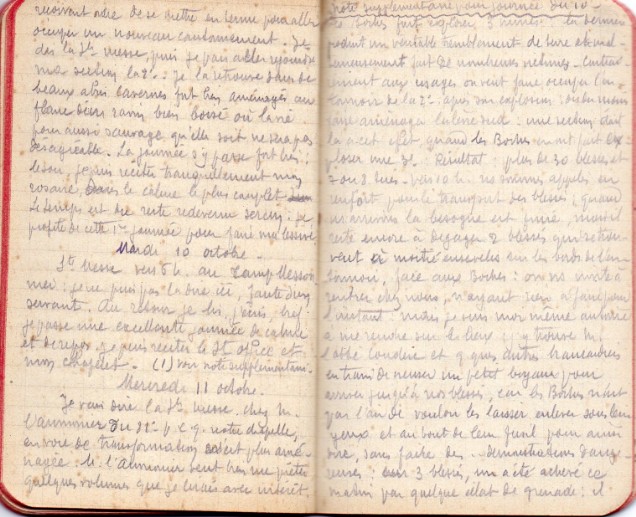 recevant ordre de se mettre en tenue pour aller
occuper un nouveau cantonnement. Je
dis la Ste messe, puis je pars aller rejoindre
ma section la 2e. Je la retrouve dans de
beaux abris cavernes fort bien aménagés au
flanc d'un ravin bien boisé où la vie
pour aussi sauvage qu'elle soit ne sera pas
désagréable. La journée s'y passe fort bien ;
le soir, je puis réciter tranquillement mon
rosaire, dans le calme le plus complet
Le temps est du reste redevenu serein. Je
profite de cette 1re journée pour faire ma lessive
Mardi 10 octobre.
Ste Messe vers 6 h. au Camp Messon
nier : je ne puis pas la dire ici, faute d'un
servant. Au retour je lis, j'écris, bref
je passe une excellente journée de calme
et de repos. Je puis réciter le St office et
mon chapelet. (1) voir note supplémentaire.
Mercredi 11 octobre.
Je vais dire la Ste messe, chez M.
l'aumônier du notre chapelle,
en voie de transformation soit plus amé-
nagée. M. l'aumônier veut bien me prêter
quelques volumes que je lirai avec intérêt.
note supplémentaire pour journée du 10 -
Le Boches font exploser 3 mines : la dernière
produit un véritable tremblement de terre et mal-
heureusement fait de nombreuses victimes. Contrai-
rement aux usages on veut faire occuper l'en-
tonnoir de la 2e après son explosion
une section doit
à cet effet, quand les Boches vont font ex-
ploser une 3e. Résultat : plus de 30 blessés et
2 ou 3 tués. Vers 10 h. nous sommes appelés en
renfort pour le transport des blessés ; quand
n. arrivons la besogne est finie, mais il
reste encore à dégager 2 blessés qui se trou-
vent à moitié ensevelis sur les bords de l'en-
tonnoir, face aux Boches : on nous invite à
rentrer chez nous, n'ayant rien à faire pour
l'instant : mais je suis moi même autorisé
à me rendre sur les lieux. J'y trouve M.
l'abbé et q. ques autres brancardiers
en train de creuser un petit boyau pour
arriver jusqu'à nos blessés, car les Boches n'ont
pas l'air de vouloir les laisser enlever sous leurs
yeux et au bout de leur fusil pour ainsi
dire, sans faire des... démonstrations dange-
reuses : sur 3 blessés, un a été achevé ce
matin par quelque éclat de grenade : il